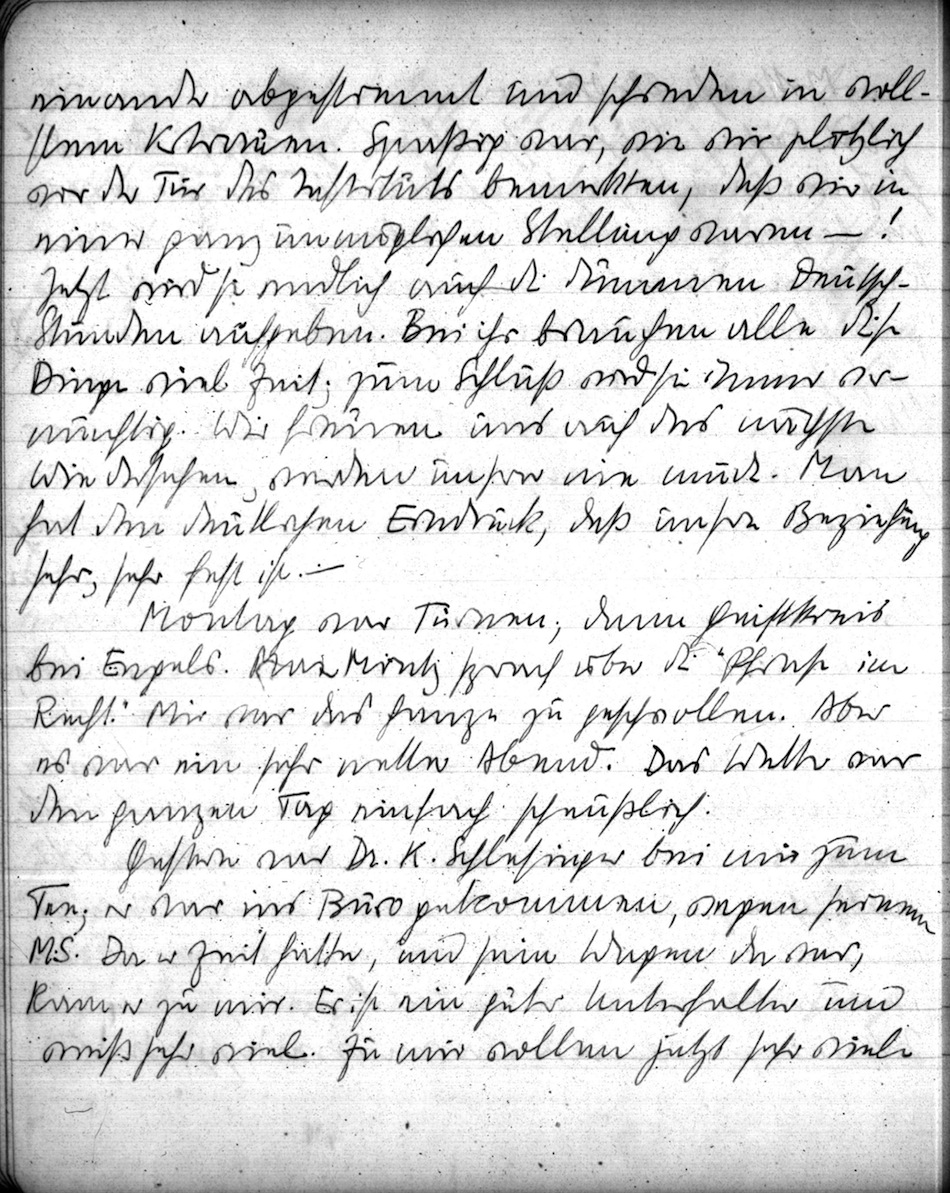 einander abgestimmt und schieden in voll-
stem Vertrauen. Spaßig war, wie wir plötzlich
vor der Tür des Instituts bemerkten, daß wir in
einer ganz unmöglichen Stellung waren — !
Jetzt wird sie endlich auch die dummen Deutsch-
Stunden aufgeben. Bei ihr brauchen alle diese
Dinge viel Zeit; zum Schluß wird sie immer ver-
nünftig. Wir freuen uns auf das nächste
Wiedersehen, werden unser nie müde. Man
hat den deutlichen Eindruck, daß unsre Beziehung
sehr, sehr fest ist. —
Montag war Turnen, dann Geistkreis
bei Engels. Mintz sprach über die "Phrase im
Recht." Mir war das Ganze zu geschwollen. Aber
es war ein sehr netter Abend. Das Wetter war
den ganzen Tag einfach scheußlich.
Gestern war Dr. K. Schlesinger bei mir zum
Tee; er war ins Büro gekommen, wegen seinem
M.S. Da er Zeit hatte, und sein Wagen da war,
kam er zu mir. Er ist ein guter Unterhalter und
weiß sehr viel. Zu mir wollen jetzt sehr viele